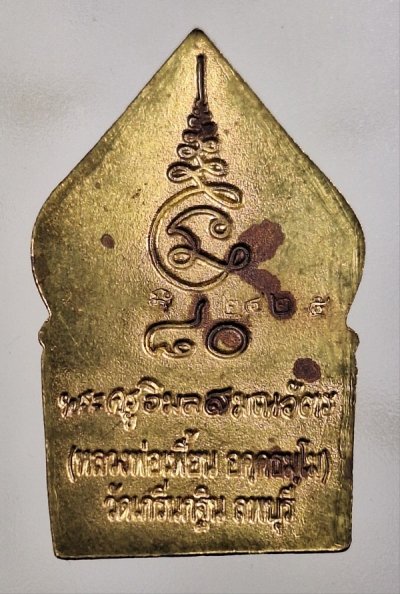 ๒๘๒๕
๘๐
พระครูวิมลสมณวัตร
(หลวงพ่อเพี้ยน อคฺคธมฺโม)
วัดเกริ่นกฐิน ลพบุรี